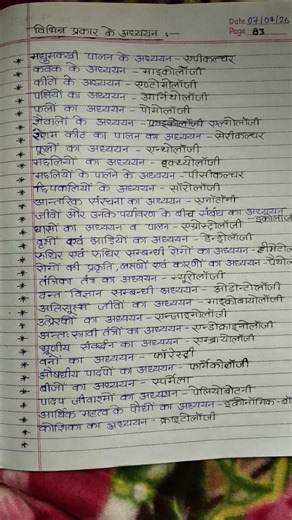 Date 07/04/26
विभिन्न प्रकार के अध्ययन :-
Page 83
* मधुमक्खी पालन के अध्ययन - एपीकल्चर
* कवक के अध्ययन - माइकोलॉजी
* कीटों के अध्ययन - एण्टोमोलॉजी
* पक्षियों का अध्ययन - आर्निथोलॉजी
* फलों का अध्ययन - पोमोलॉजी
* शैवालों के अध्ययन - एल्गोलॉजी
* रेशम कीट का पालन का अध्ययन - सेरीकल्चर
* फूलों का अध्ययन - एन्थोलॉजी
* मछलियों का अध्ययन - इक्थ्योलॉजी
* मछलियों के पालने के अध्ययन - पीसीकल्चर
* छिपकलियों के अध्ययन - सॉरोलॉजी
* आन्तरिक संरचना का अध्ययन - एनाटोमी
* जीवों और उनके पर्यावरण के बीच संबंध का अध्ययन - इकोलॉजी
* घासों का अध्ययन व पालन - एग्रोस्टोलॉजी
* वृक्षों एवं झाड़ियों का अध्ययन - डेन्ड्रोलॉजी
* रुधिर एवं रुधिर सम्बन्धी रोगों का अध्ययन - हीमेटोलॉजी
* रोगों की प्रकृति, लक्षणों एवं कारणों का अध्ययन - पैथो
* तंत्रिका तंत्र का अध्ययन - न्यूरोलॉजी
* दन्त विज्ञान सम्बन्धी अध्ययन - ओडोन्टोलॉजी
* अतिसूक्ष्म जीवों का अध्ययन - माइक्रोबायोलॉजी
* उत्प्रेरकों का अध्ययन - एन्जाइमोलॉजी
* अन्तःस्त्रावी तंत्रों का अध्ययन - एन्डोक्राइनोलॉजी
* भ्रूणीय संवर्द्धन का अध्ययन - एम्ब्रायोलॉजी
* वनों का अध्ययन - फॉरेस्ट्री
* औषधीय पादपों का अध्ययन - फार्माकोलॉजी
* बीजों का अध्ययन - स्पर्मोलॉ
* पादप जीवाश्मों का अध्ययन - पेलियोबोटनी
* आर्थिक महत्व के पौधों का अध्ययन - इकोनॉमिक-बो
* कोशिका का अध्ययन - क्राइटोलॉजी